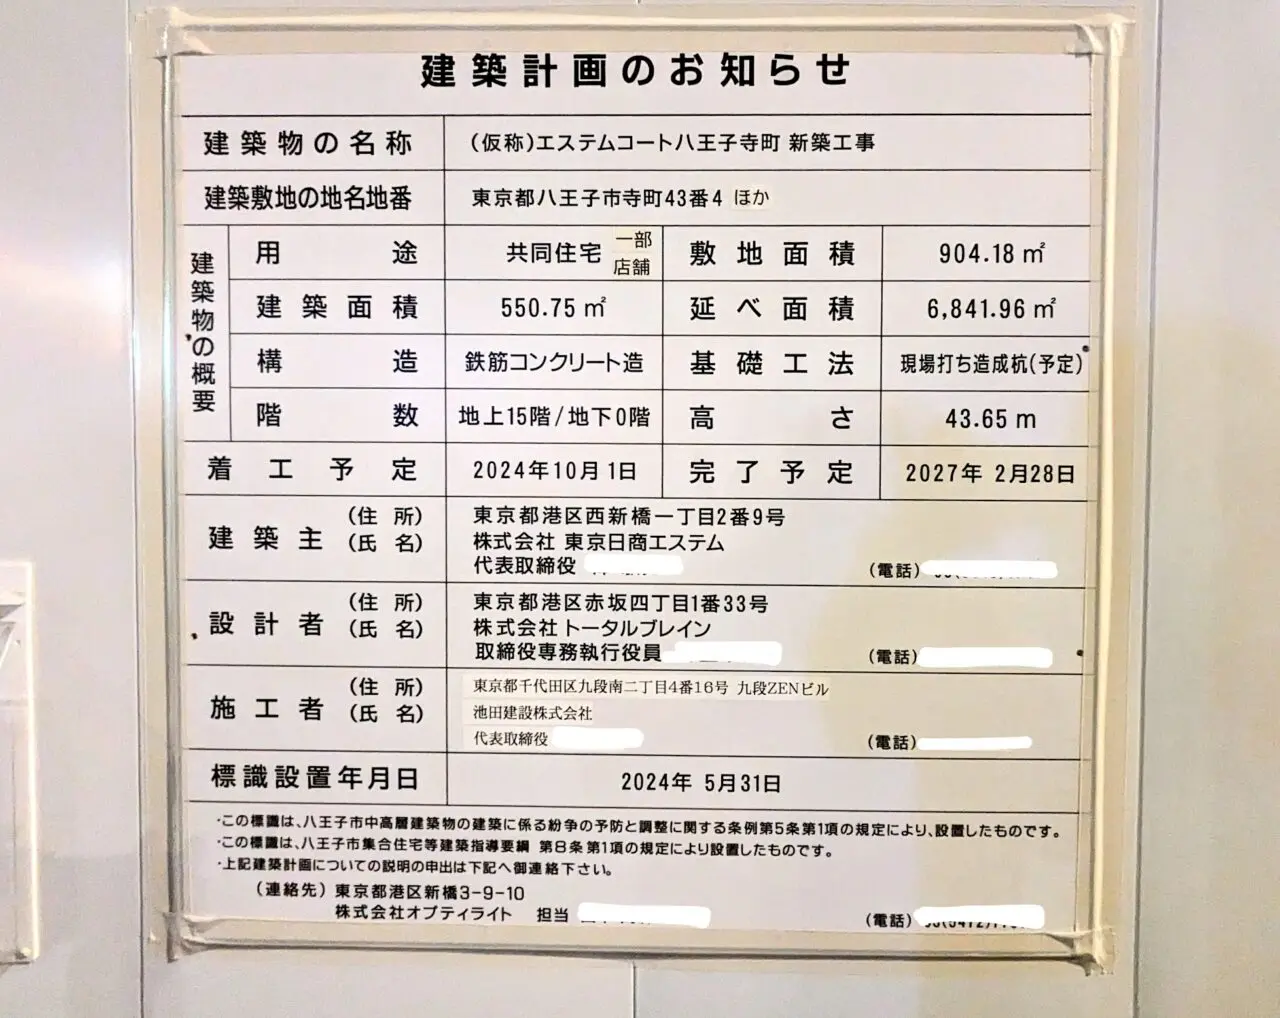 建築計画のお知らせ
建築物の名称 (仮称)エステムコート八王子寺町 新築工事
建築敷地の地名地番 東京都八王子市寺町43番4 ほか
建築物の概要
用途 共同住宅 一部店舗 敷地面積 904.18㎡
建築面積 550.75㎡ 延べ面積 6,841.96㎡
構造 鉄筋コンクリート造 基礎工法 現場打ち造成杭(予定)
階数 地上15階/地下0階 高さ 43.65m
着工予定 2024年10月1日 完了予定 2027年 2月28日
建築主 (住所) (氏名)
東京都港区西新橋一丁目2番9号
株式会社 東京日商エステム
代表取締役 (電話)
設計者 (住所) (氏名)
東京都港区赤坂四丁目1番33号
株式会社トータルブレイン
取締役専務執行役員 (電話)
施工者 (住所) (氏名)
東京都千代田区九段南二丁目4番16号 九段ZENビル
池田建設株式会社
代表取締役 (電話)
標識設置年月日 2024年 5月31日
・この標識は、八王子市中高層建築物の建築に係る紛争の予防と調整に関する条例第5条第1項の規定により、設置したものです。
・この標識は、八王子市集合住宅等建築指導要綱 第8条第1項の規定により設置したものです。
・上記建築計画についての説明の申出は下記へ御連絡下さい。
(連絡先) 東京都港区新橋3-9-10
株式会社オプティライト 担当 (電話)